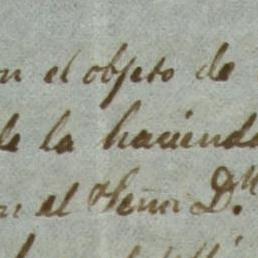 n el objeto de
de la hacienda
n el Señor D.n